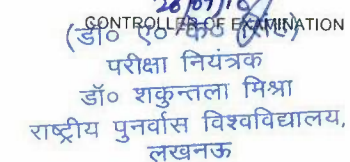 CONTROLLER OF EXAMINATION
(डॉ० ए०
परीक्षा नियंत्रक
डॉ० शकुन्तला मिश्रा
राष्ट्रीय पुनर्वास विश्वविद्यालय,
लखनऊ